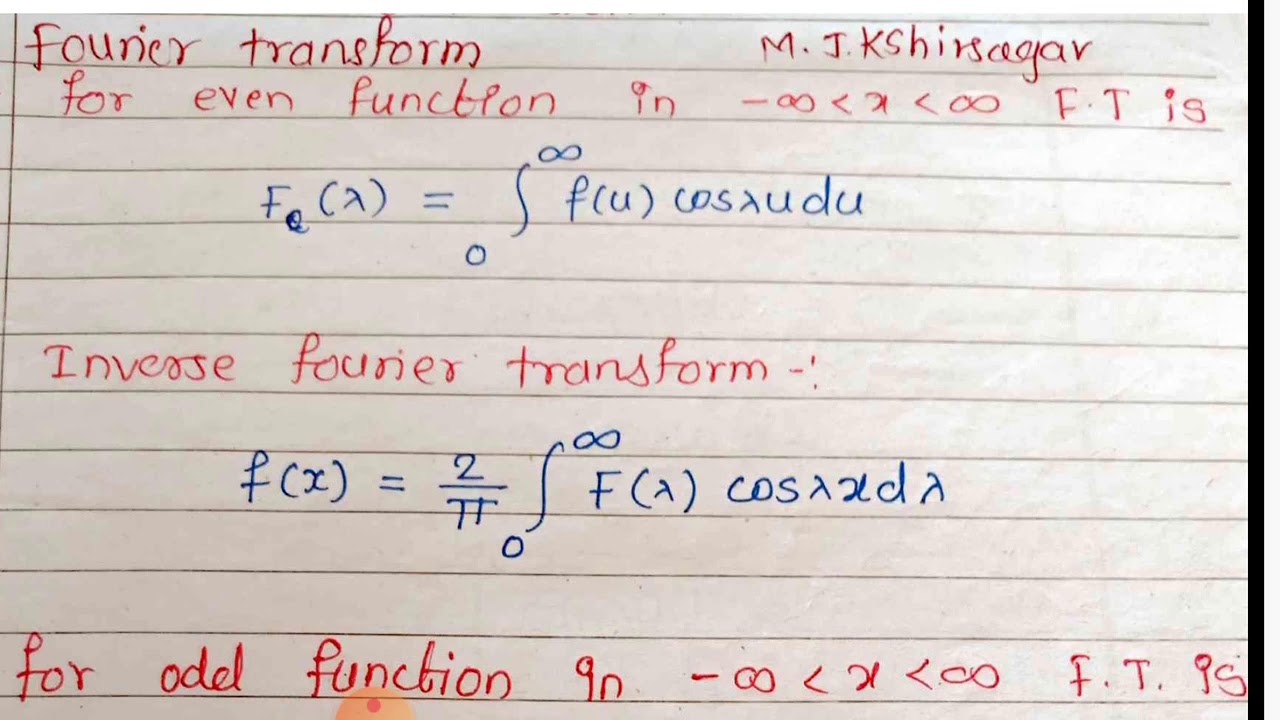 Fourier transform M. J. Kshirsagar
for even function in -∞ < x < ∞ F.T is
Fc(λ) = ∫₀^∞ f(u) cosλu du
Inverse fourier transform -:
f(x) = 2/π ∫₀^∞ F(λ) cosλx dλ
for odd function in -∞ < x < ∞ F.T. is